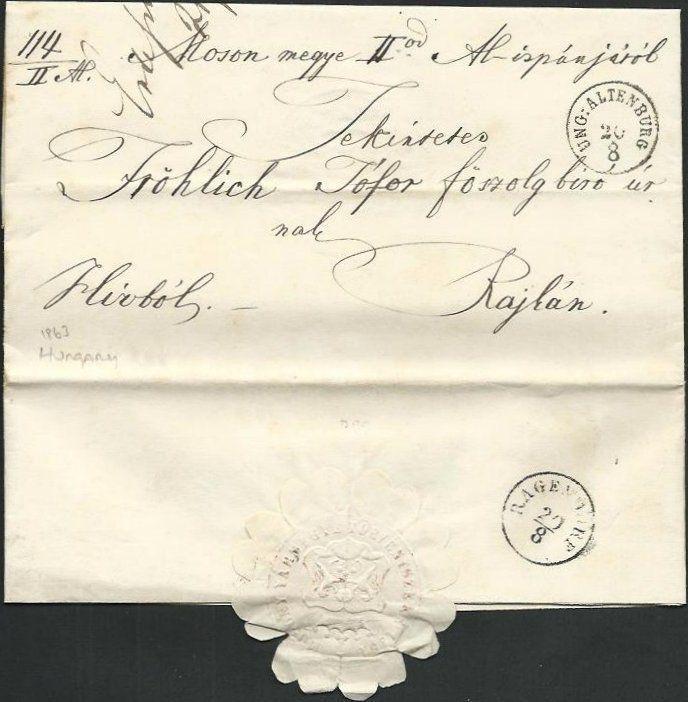 114
II Al.
Moson megye II od Al-ispánjáról
Tekintetes
Fröhlich Tófor főszolgbiró úr
nak
Hivból. –
Rajkán.
UNG: ALTENBURG
20
8
1863
Hungary
RAGENDORF
20
8